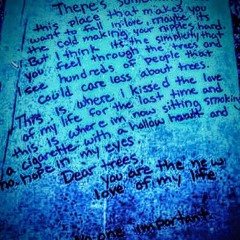 There's some
this place that makes you
want to fall in love, maybe its
the cold making your nipples hard.
But I think it's the simplicity that
you feel through the trees and
see hundreds of people that
could care less about trees.
This is where I kissed the love
of my life for the last time and
this is where im now sitting smoking
a cigarette with a hollow heart and
no hope in my eyes.
Dear trees,
you are the new
love of my life.
No one important